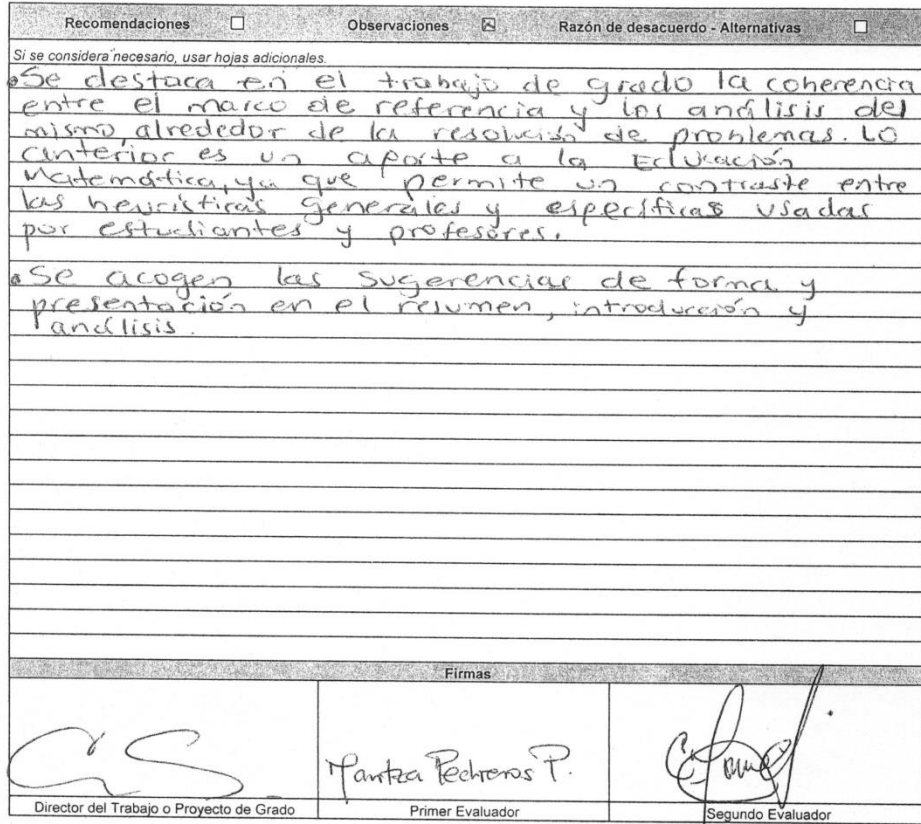 Recomendaciones ☐ Observaciones ☒ Razón de desacuerdo - Alternativas ☐
Si se considera necesario, usar hojas adicionales.
• Se destaca en el trabajo de grado la coherencia
entre el marco de referencia y los análisis del
mismo alrededor de la resolución de problemas. Lo
anterior es un aporte a la Educación
Matemática, ya que permite un contraste entre
las heurísticas generales y específicas usadas
por estudiantes y profesores.
• Se acogen las sugerencias de forma y
presentación en el resumen, introducción y
análisis.
Firmas
Maritza Pedreros P.
Director del Trabajo o Proyecto de Grado Primer Evaluador Segundo Evaluador